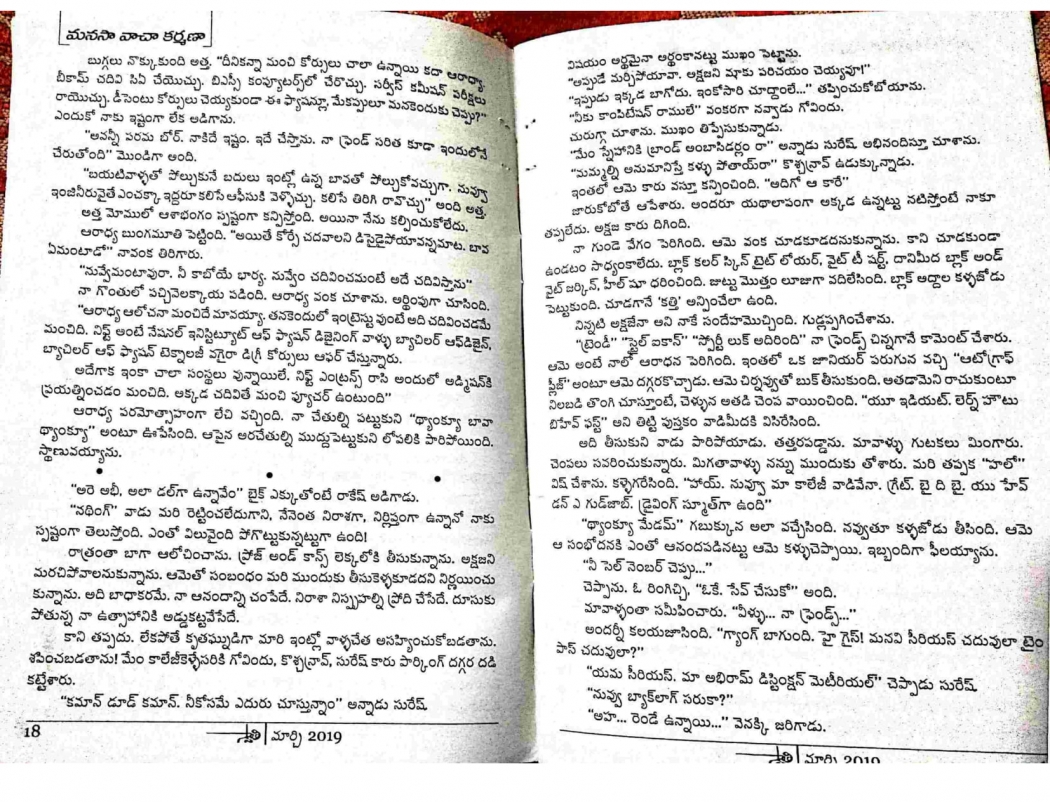 మనసా వాచా కర్మణా
బుగ్గలు నొక్కుకుంది అత్త. "దీనికన్నా మంచి కోర్సులు చాలా ఉన్నాయి కదా ఆరాధ్యా.
బీకామ్ చదివి సిఏ చేయొచ్చు. బిఎస్సీ కంప్యూటర్స్‌లో చేరొచ్చు. సర్వీస్ కమీషన్ పరీక్షలు
రాయొచ్చు. డీసెంటు కోర్సులు చెయ్యకుండా ఈ ఫ్యాషన్లూ, మేకప్పులూ మనకెందుకు చెప్పు?"
ఎందుకో నాకు ఇష్టంగా లేక అడిగాను.
"అవన్నీ పరమ బోర్. నాకిదే ఇష్టం. ఇదే చేస్తాను. నా ఫ్రెండ్ సరిత కూడా ఇందులోనే
చేరుతోంది" మొండిగా అంది.
"బయటివాళ్ళతో పోల్చుకునే బదులు ఇంట్లో ఉన్న బావతో పోల్చుకోవచ్చుగా. నువ్వూ
ఇంజినీరువైతే ఎంచక్కా ఇద్దరూ కలిసే ఆఫీసుకి వెళ్ళొచ్చు. కలిసే తిరిగి రావొచ్చు" అంది అత్త.
అత్త మోములో ఆశాభంగం స్పష్టంగా కన్పిస్తోంది. అయినా నేను కల్పించుకోలేదు.
ఆరాధ్య బుంగమూతి పెట్టింది. "అయితే కోర్సే చదవాలని డిసైడైపోయావన్నమాట. బావ
ఏమంటాడో" నావంక తిరిగారు.
"నువ్వేమంటావురా. నీ కాబోయే భార్య. నువ్వేం చదివించమంటే అదే చదివిస్తాను"
నా గొంతులో పచ్చివెలక్కాయ పడింది. ఆరాధ్య వంక చూశాను. అర్థింపుగా చూసింది.
"ఆరాధ్య ఆలోచనా మంచిదే మావయ్యా. తనకెందులో ఇంట్రెస్టు వుంటే అది చదివించడమే
మంచిది. నిఫ్ట్ అంటే నేషనల్ ఇనిస్టిట్యూట్ ఆఫ్ ఫ్యాషన్ డిజైనింగ్ వాళ్ళు బ్యాచిలర్ ఆఫ్‌డిజైన్,
బ్యాచిలర్ ఆఫ్ ఫ్యాషన్ టెక్నాలజీ వగైరా డిగ్రీ కోర్సులు ఆఫర్ చేస్తున్నారు.
అదేగాక ఇంకా చాలా సంస్థలు వున్నాయిలే. నిఫ్ట్ ఎంట్రన్స్ రాసి అందులో అడ్మిషన్‌కి
ప్రయత్నించడం మంచిది. అక్కడ చదివితే మంచి ఫ్యూచర్ ఉంటుంది"
ఆరాధ్య పరమోత్సాహంగా లేచి వచ్చింది. నా చేతుల్ని పట్టుకుని "థ్యాంక్యూ బావా
థ్యాంక్యూ" అంటూ ఊపేసింది. ఆపైన అరచేతుల్ని ముద్దుపెట్టుకుని లోపలికి పారిపోయింది.
స్థాణువయ్యాను.
"అరె అభీ, అలా డల్‌గా ఉన్నావేం" బైక్ ఎక్కుతోంటే రాకేష్ అడిగాడు.
"నథింగ్" వాడు మరి రెట్టించలేదుగాని, వేనెంత నిరాశగా, నిర్లిప్తంగా ఉన్నానో నాకు
స్పష్టంగా తెలుస్తోంది. ఎంతో విలువైంది పోగొట్టుకున్నట్టుగా ఉంది!
రాత్రంతా బాగా ఆలోచించాను. ప్రోజ్ అండ్ కాన్స్ లెక్కలోకి తీసుకున్నాను. అక్షజని
మరచిపోవాలనుకున్నాను. ఆమెతో సంబంధం మరి ముందుకు తీసుకెళ్ళకూడదని నిర్ణయించు
కున్నాను. అది బాధాకరమే. నా ఆనందాన్ని చంపేదే. నిరాశా నిస్పృహల్ని ప్రోది చేసేదే. దూసుకు
పోతున్న నా ఉత్సాహానికి అడ్డుకట్టవేసేదే.
కాని తప్పదు. లేకపోతే కృతఘ్నుడిగా మారి ఇంట్లో వాళ్ళచేత అసహ్యించుకోబడతాను.
శపించబడతాను! మేం కాలేజీకెళ్ళేసరికి గోవిందు, కౌశ్చన్రావ్, సురేష్ కారు పార్కింగ్ దగ్గర దడి
కట్టేశారు.
"కమాన్ డూడ్ కమాన్. నీకోసమే ఎదురు చూస్తున్నాం" అన్నాడు సురేష్.
18
స్వాతి మార్చి 2019
విషయం అర్థమైనా అర్థంకానట్టు ముఖం పెట్టాను.
"అప్పుడే మర్చిపోయావా. అక్షజని మాకు పరిచయం చెయ్యవూ!"
"ఇప్పుడు ఇక్కడ బాగోదు. ఇంకోసారి చూద్దాంలే..." తప్పించుకోబోయాను.
"నీకు కాంపిటేషన్ రాములే" వంకరగా నవ్వాడు గోవిందు.
చురుగ్గా చూశాను. ముఖం తిప్పేసుకున్నాడు.
"మేం స్నేహానికి బ్రాండ్ అంబాసిడర్లం రా" అన్నాడు సురేష్ అభినందిస్తూ చూశాను.
"మమ్మల్ని అనుమానిస్తే కళ్ళు పోతాయ్‌రా" కౌశ్చన్రావ్ ఉడుక్కున్నాడు.
ఇంతలో ఆమె కారు వస్తూ కన్పించింది. "అదిగో ఆ కారే"
జారుకోబోతే ఆపేశారు. అందరూ యథాలాపంగా అక్కడ ఉన్నట్టు నటిస్తోంటే నాకూ
తప్పలేదు. అక్షజ కారు దిగింది.
నా గుండె వేగం పెరిగింది. ఆమె వంక చూడకూడదనుకున్నాను. కాని చూడకుండా
ఉండటం సాధ్యంకాలేదు. బ్లాక్ కలర్ స్కిన్ టైట్ లోయర్, వైట్ టీ షర్ట్, దానిమీద బ్లాక్ అండ్
వైట్ జర్కిన్, హీల్ షూ ధరించింది. జుట్టు మొత్తం లూజుగా వదిలేసింది. బ్లాక్ అద్దాల కళ్ళజోడు
పెట్టుకుంది. చూడగానే 'కత్తి' అన్పించేలా ఉంది.
నిన్నటి అక్షజేనా అని నాకే సందేహమొచ్చింది. గుడ్లప్పగించేశాను.
"ట్రెండీ" "స్టైల్ ఐకాన్" "స్పోర్టీ లుక్ అదిరింది" నా ఫ్రెండ్స్ చిన్నగానే కామెంట్ చేశారు.
ఆమె అంటే నాలో ఆరాధన పెరిగింది. ఇంతలో ఒక జూనియర్ పరుగున వచ్చి "ఆటోగ్రాఫ్
ప్లీజ్" అంటూ ఆమె దగ్గరకొచ్చాడు. ఆమె చిర్నవ్వుతో బుక్ తీసుకుంది. అతడామెని రాచుకుంటూ
నిలబడి తొంగి చూస్తూంటే, చెళ్ళున అతడి చెంప వాయించింది. "యూ ఇడియట్. లెర్న్ హౌటు
బిహేవ్ ఫస్ట్" అని తిట్టి పుస్తకం వాడిమీదకి విసిరేసింది.
అది తీసుకుని వాడు పారిపోయాడు. తత్తరపడ్డాను. మావాళ్ళు గుటకలు మింగారు.
చెంపలు సవరించుకున్నారు. మిగతావాళ్ళు నన్ను ముందుకు తోశారు. మరి తప్పక "హలో"
విష్ చేశాను. కళ్ళెగరేసింది. "హాయ్. నువ్వు మా కాలేజీ వాడివేనా. గ్రేట్. బై ది బై, యు హేవ్
డన్ ఎ గుడ్‌జాబ్. డ్రైవింగ్ స్మూత్‌గా ఉంది"
"థ్యాంక్యూ మేడమ్" గబుక్కున అలా వచ్చేసింది. నవ్వుతూ కళ్ళజోడు తీసింది. ఆమె
ఆ సంభోదనకి ఎంతో ఆనందపడినట్టు ఆమె కళ్ళుచెప్పాయి. ఇబ్బందిగా ఫీలయ్యాను.
"నీ సెల్ నెంబర్ చెప్పు..."
చెప్పాను. ఓ రింగిచ్చి, "ఓకే. సేవ్ చేసుకో" అంది.
మావాళ్ళంతా సమీపించారు. "వీళ్ళు... నా ఫ్రెండ్స్..."
అందర్నీ కలయజూసింది. "గ్యాంగ్ బాగుంది. హై గైస్! మనవి సీరియస్ చదువులా టైం
పాస్ చదువులా?"
"యమ సీరియస్. మా అభిరామ్ డిస్టింక్షన్ మెటీరియల్" చెప్పాడు సురేష్.
"నువ్వు బ్యాక్‌లాగ్ సరుకా?"
"అహ... రెండే ఉన్నాయి..." వెనక్కి జరిగాడు.
స్వాతి మార్చి 2019